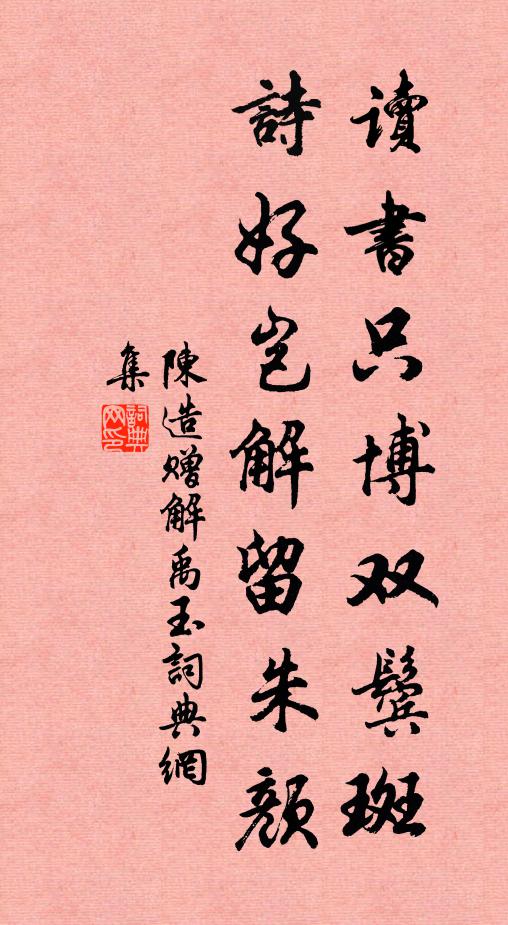 读書只博双鬓斑
詩好岂解留朱颜
陳造赠解禹玉詞典網
集
詞典网印